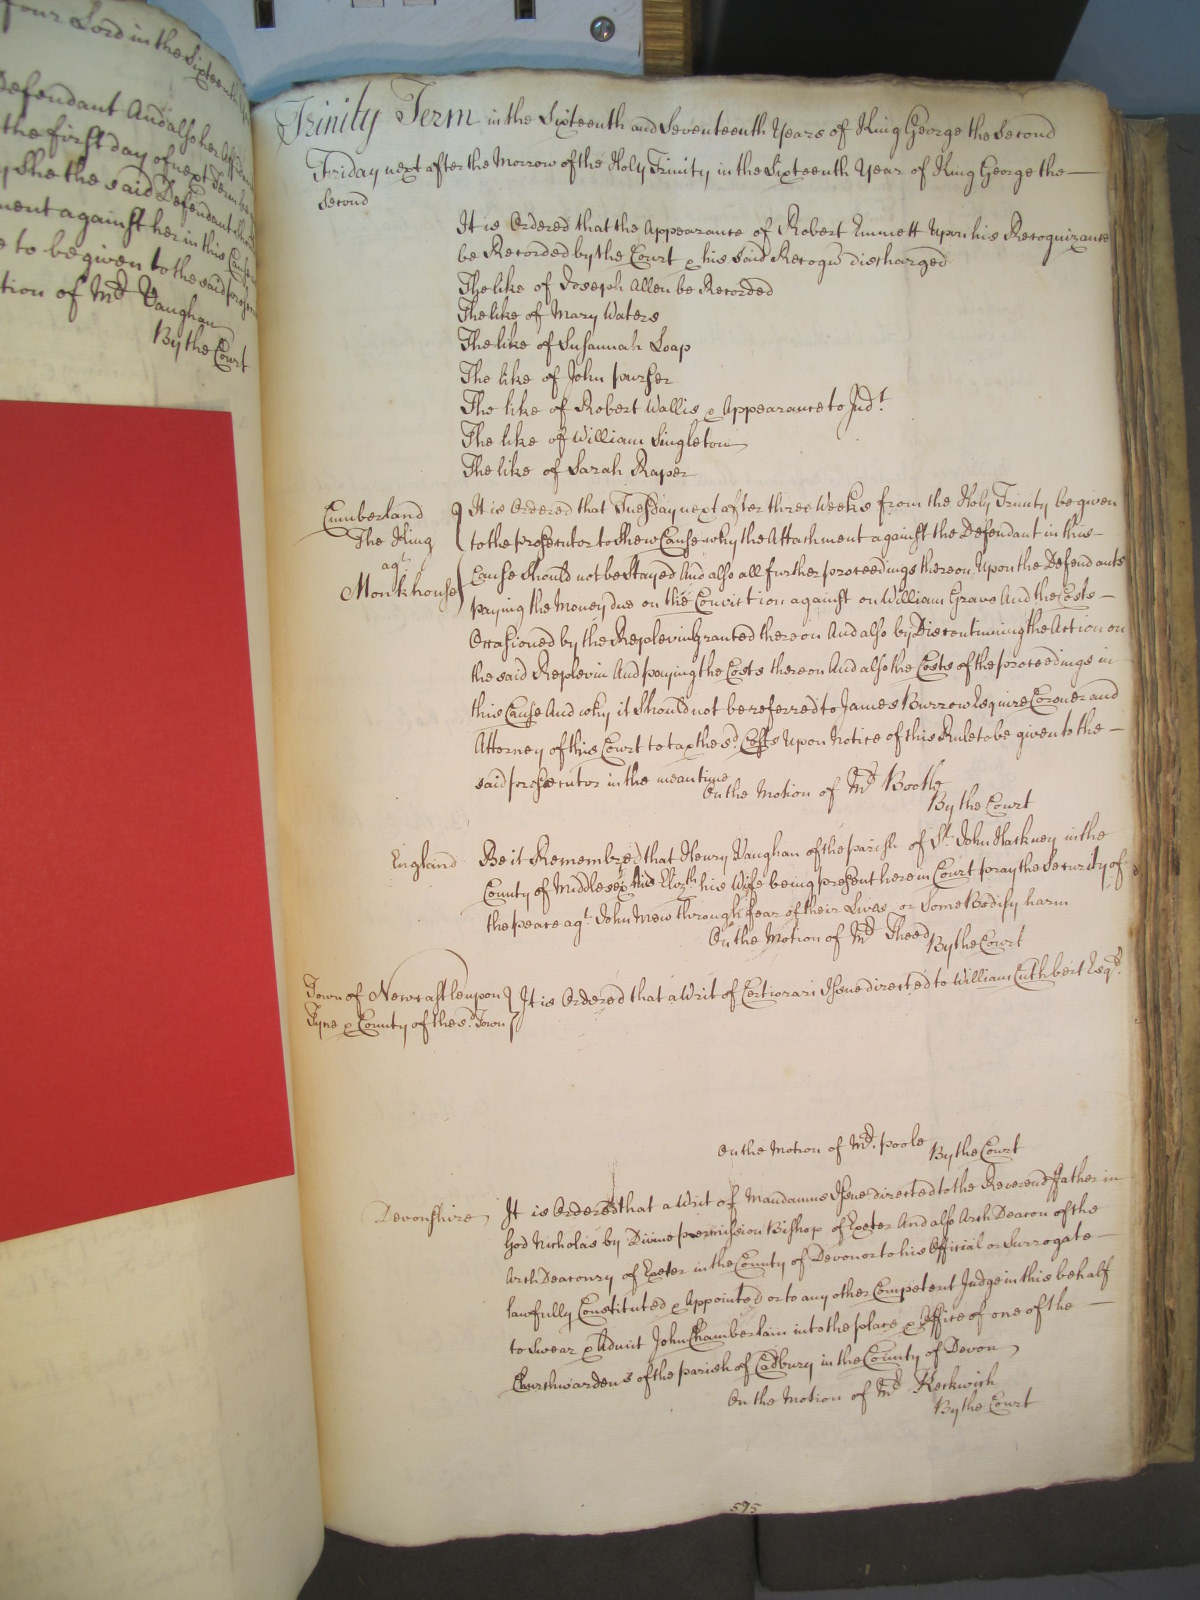 four Lord in the Sixteenth
Defendant And also her
the first day of next Term
She the said Defendant
ment against her in this
e to be given to the said
tion of Mr. Vaughan
By the Court
Trinity Term in the Sixteenth and Seventeenth Years of King George the Second
Friday next after the Morrow of the Holy Trinity in the Sixteenth Year of King George the —
Second
It is Ordered that the Appearance of Robert Emmett Upon his Recognizance
be Recorded by the Court & his said Recogn discharged
The like of Joseph Allen be Recorded
The like of Mary Waters
The like of Susannah Loap
The like of John purser
The like of Robert Wallis & Appearance to Judt.
The like of William Singleton
The like of Sarah Raper
Cumberland
The King
agt.
Monkhouse
It is Ordered that Tuesday next after three Weeks from the Holy Trinity be given
to the prosecutor to Shew Cause why the Attachment against the Defendant in this —
Cause Should not be Stayed And also all further proceedings thereon Upon the Defendants
paying the Money due on the Conviction against on William Grave And the Costs —
Occasioned by the Replevin granted thereon And also by Discontinuing the Action on
the said Replevin And paying the Costs thereon And also the Costs of the proceedings in
this Cause And why it Should not be referred to James Burrow Esquire Coroner and
Attorney of this Court to tax the sd. Costs Upon Notice of this Rule to be given to the —
said prosecutor in the meantime
On the Motion of Mr. Bootle
By the Court
England
Be it Remembred that Henry Vaughan of the parish of St. John Hackney in the
County of Middlesex & Elizth his Wife being present here in Court pray the Security of
the peace agt. John Mew through fear of their Lives or Some Bodily harm
On the Motion of Mr. Theed
By the Court
Town of Newcastle upon
Tyne & County of the sd. Town
It is Ordered that a Writ of Certiorari Issue directed to William Cuthbert Esqr.
On the Motion of Mr. poole
By the Court
Devonshire
It is Ordered that a Writ of Mandamus Issue directed to the Reverend ffather in
God Nicholas by Divine permission Bishop of Exeter And also Arch Deacon of the
Arch Deaconry of Exeter in the County of Devon or to his Official or Surrogate —
lawfully Constituted & Appointed or to any other Competent Judge in this behalf
to Swear & Admit John Chamberlain into the place & Office of one of the —
Churchwardens of the parish of Cadbury in the County of Devon
On the Motion of Mr. Keckwich
By the Court
595